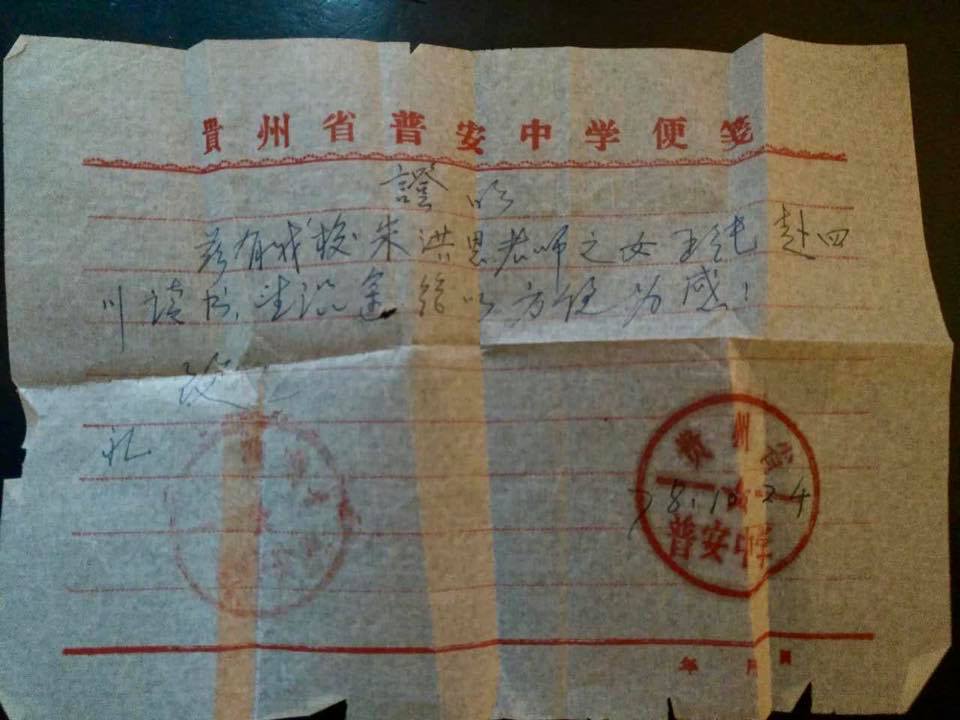 貴州省普安中学便笺
證明
兹有我校朱洪恩老师之女 赴四
川读书,望沿途给以方便为感!
致
礼
贵州省
78.10.24
普安中学
年 月 日